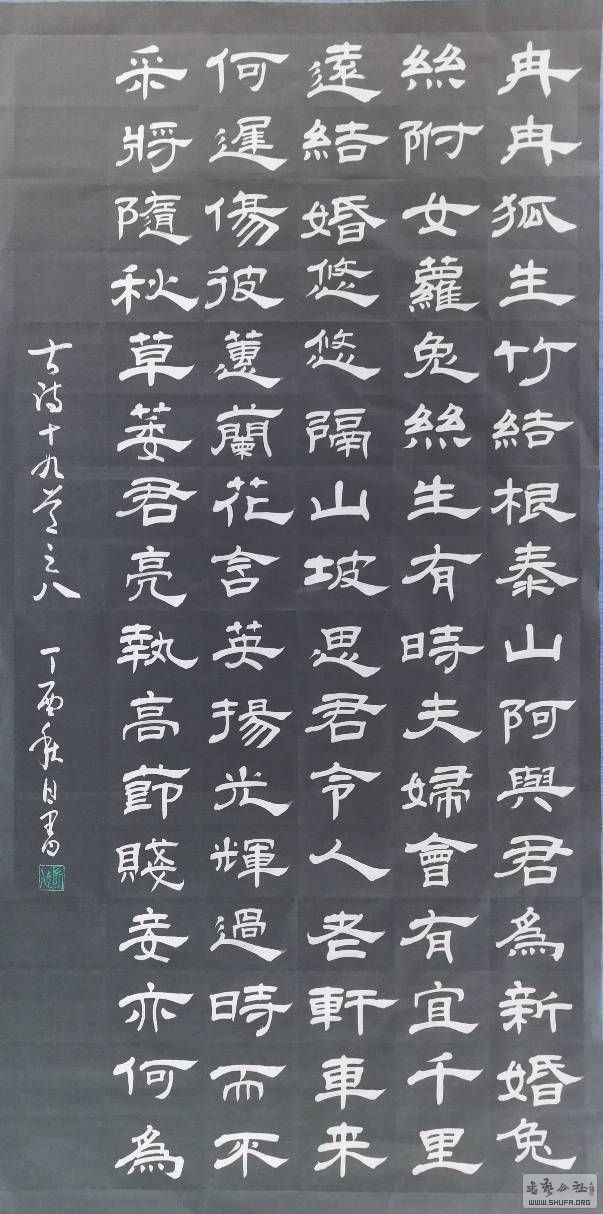 冉冉狐生竹結根泰山阿與君為新婚兔
絲附女蘿兔絲生有時夫婦會有宜千里
遠結婚悠悠隔山坡思君令人老軒車来
何遲傷彼蕙蘭花含英揚光輝過時而不
采將隨秋草萎君亮執高節賤妾亦何為
古詩十九首之八 丁酉秋月書
書藝公社
WWW.SHUFA.ORG